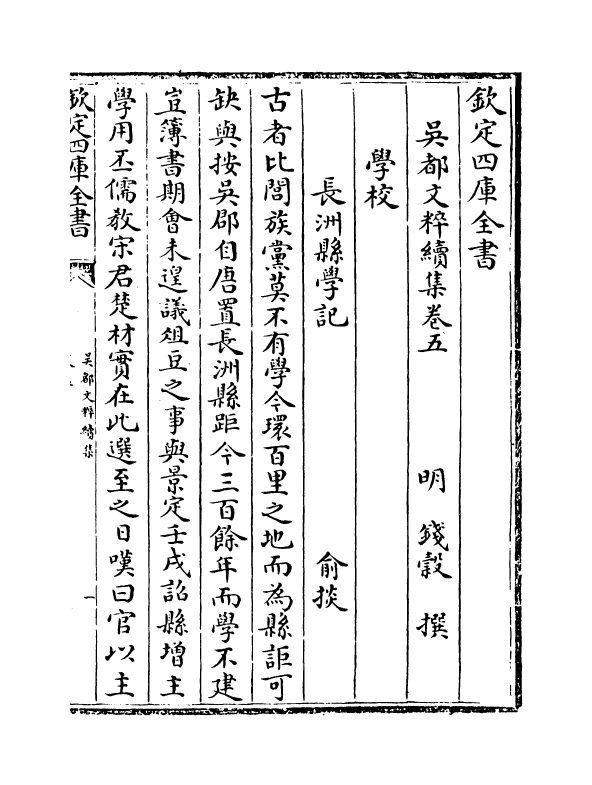 欽定四庫全書
吳都文粹續集卷五 明 錢榖 撰
學校
長洲縣學記 俞掞
古者比閭族黨莫不有學今環百里之地而為縣詎可
缺與按吳郡自唐置長洲縣距今三百餘年而學不建
豈簿書期會未遑議俎豆之事與景定壬戌詔縣增主
學用丕儒教宋君楚材實在此選至之日嘆曰官以主
欽定四庫全書
吳都文粹續集
一